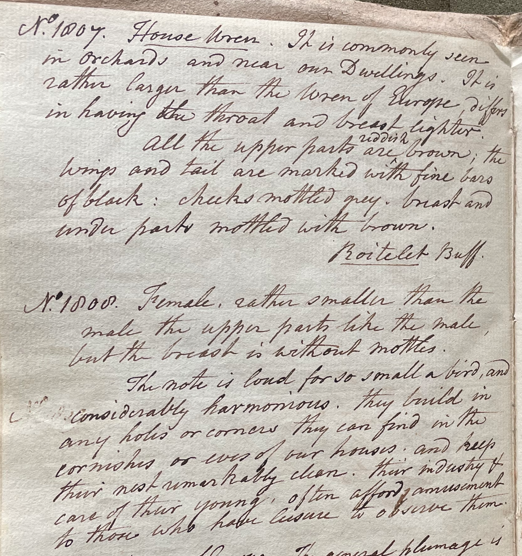 No. 1807. House Wren. It is commonly seen
in orchards and near our Dwellings. It is
rather larger than the Wren of Europe, differs
in having the throat and breast lighter.
reddish
All the upper parts are brown; the
wings and tail are marked with fine bars
of black: cheeks mottled grey. breast and
under parts mottled with brown.
Roitelet Buff.
No. 1808. Female, rather smaller than the
male the upper parts like the male,
but the breast is without mottles.
The note is loud for so small a bird, and
considerably harmonious. they build in
any holes or corners they can find in the
cornishes or eves of our houses, and keep
their nest remarkably clean. their industry &
care of their young, often afford amusement
to those who have leisure to observe them.
The general plumage is